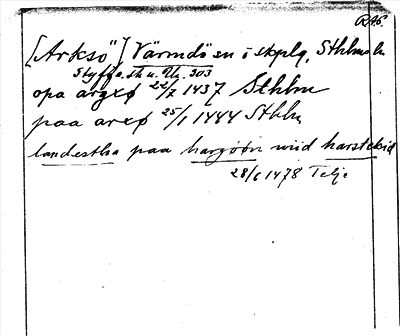 RAÖ.
[Arksö] Värmdö sn i skplg, Sthlms l.
Styffe, Sk. u. Ut. 303
opa argxø 22/7 1437 Sthlm
paa arxø 25/1 1444 Sthlm
landestha paa hargøøn wiid harstekid
28/6 1478 Telje